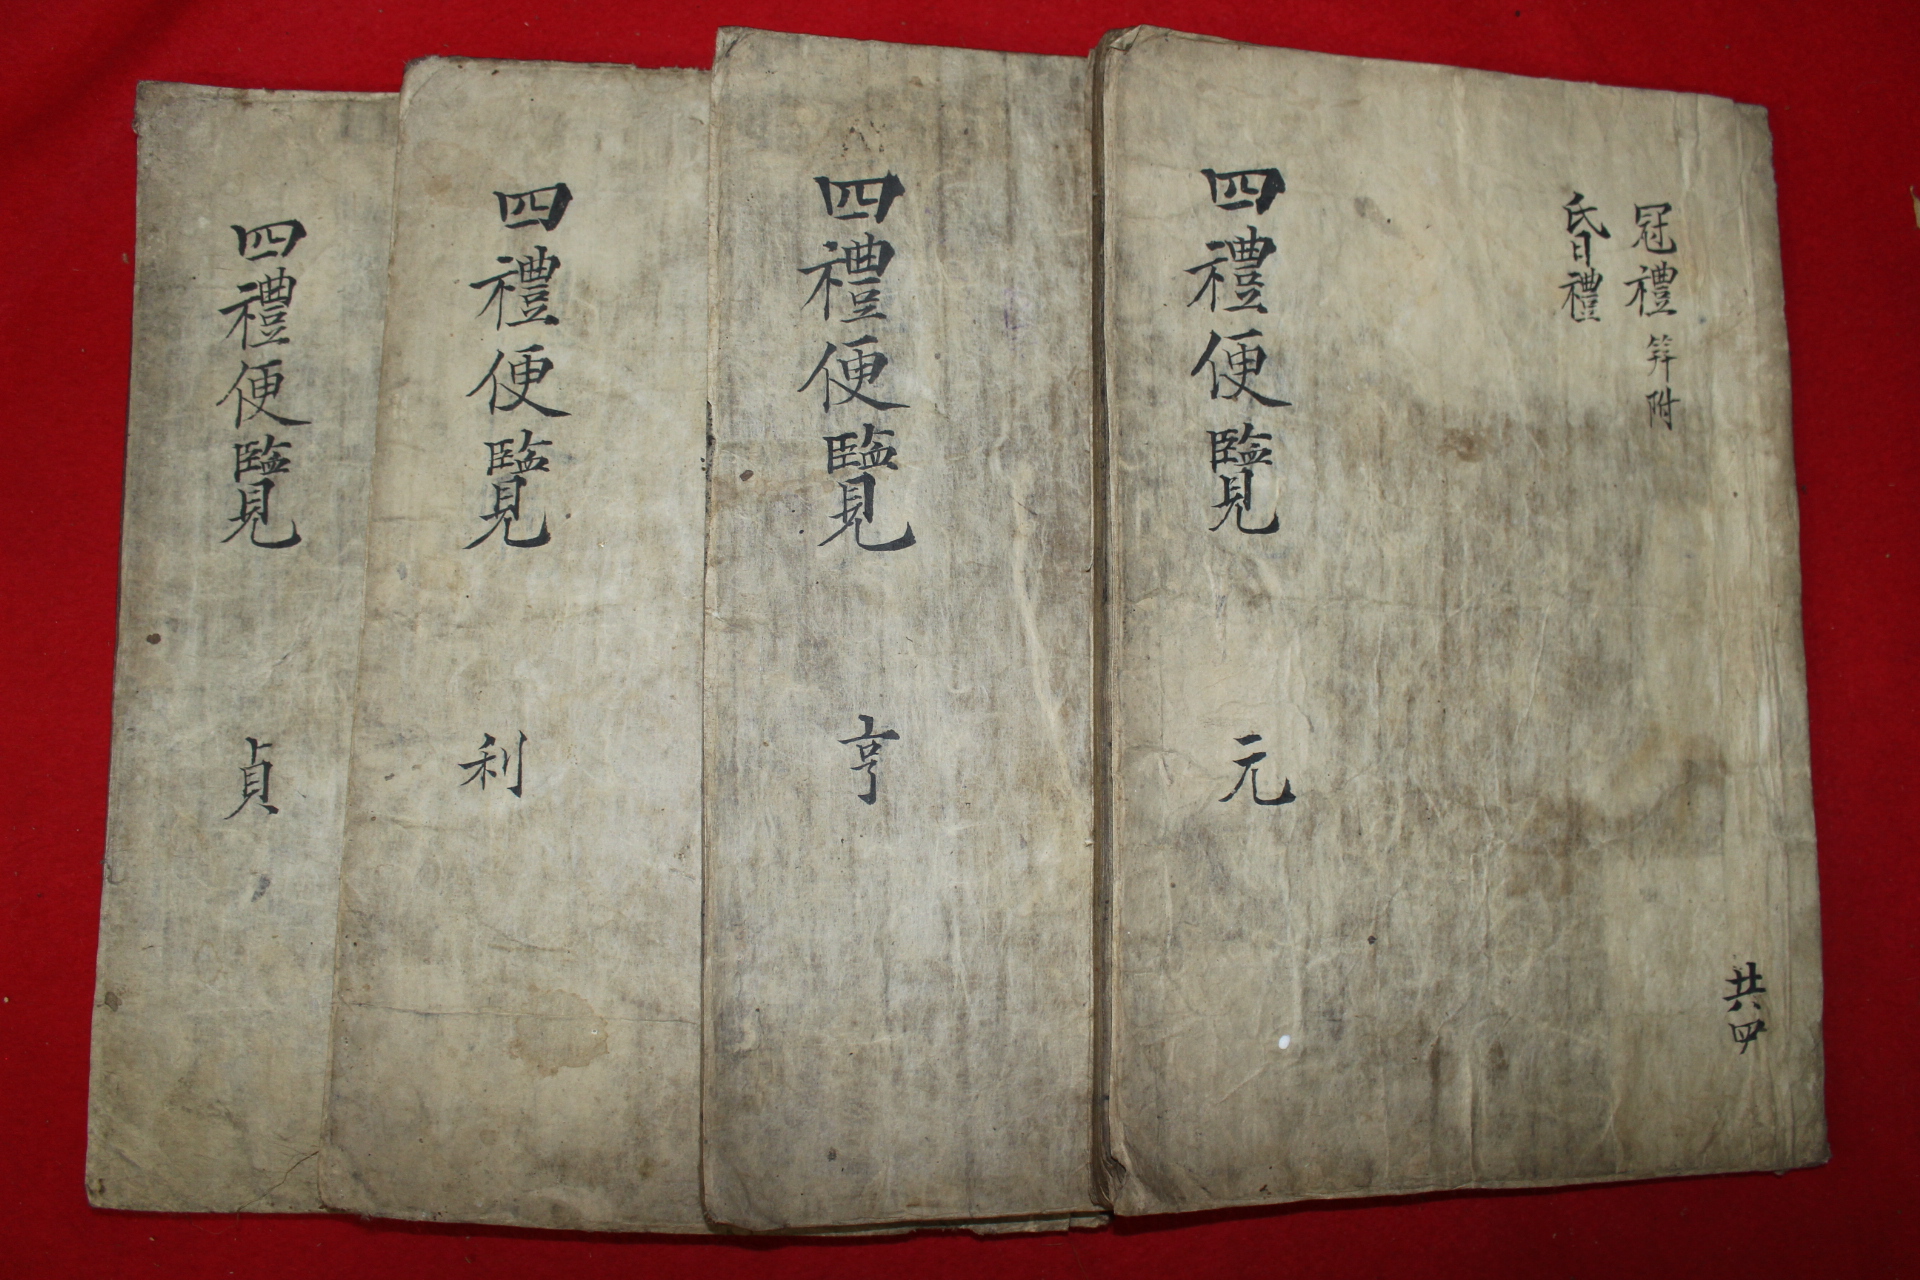 冠禮 笄附
昏禮
共四
四禮便覽 元
四禮便覽 亨
四禮便覽 利
四禮便覽 貞